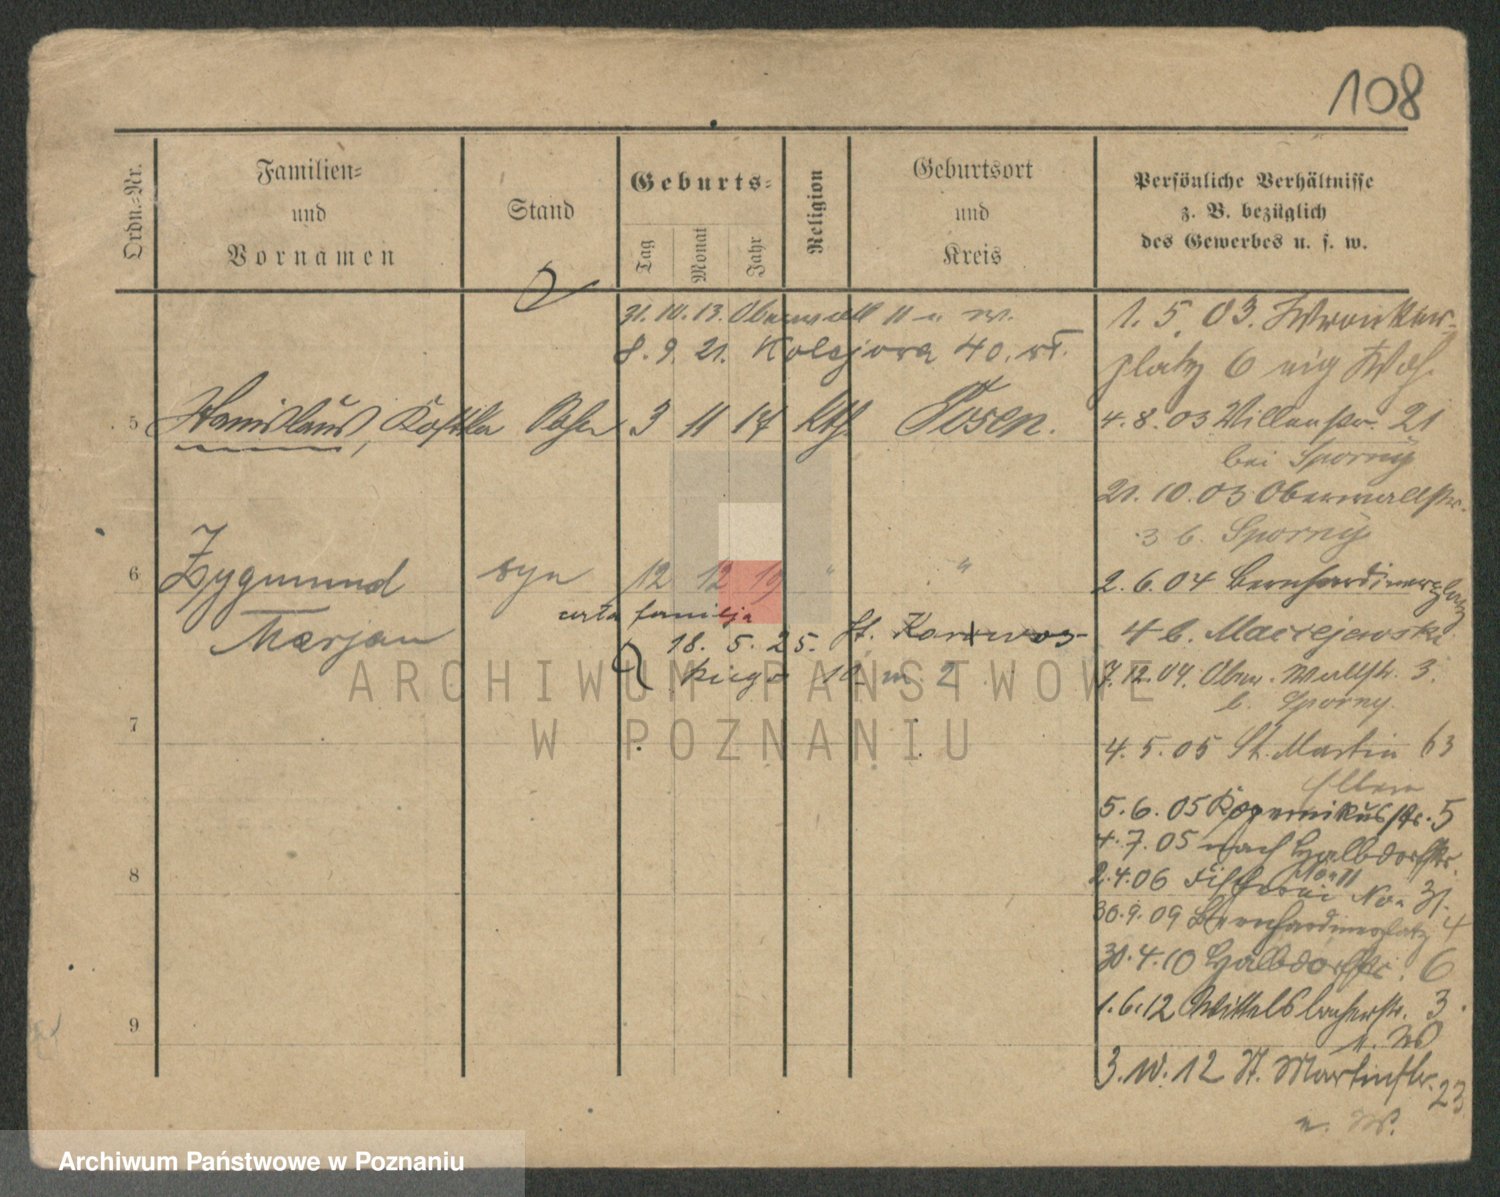 108
Ordn.-Nr.
Familien-
und
Vornamen
Stand
Geburts-
Tag
Monat
Jahr
Religion
Geburtsort
und
Kreis
Persönliche Verhältnisse
z. B. bezüglich
des Gewerbes u. s. w.
31. 10. 13. Oberwall 11 u. W.
8. 9. 21. Kolejowa 40.
5 Stanislaus, Kostka Sohn 3 11 17 kth. Posen.
6 Zygmund syn 12 12 19 " "
Marjan
cała familja
18. 5. 25. St. Karwow-
skiego 10 m. 2
7
8
9
1. 5. 03. Wronker-
platz 6 eig Woh.
4. 8. 03 21
bei Sporny
21. 10. 03 Oberwallstr.
3 b. Sporny
2. 6. 04 Bernhardinerplatz
4 b. Maciejewski
7. 12. 04. Ober. Wallstr. 3.
b. Sporny.
4. 5. 05 St. Martin 63
5. 6. 05 Kopernikusstr. 5
4. 7. 05 nach Halbdorfstr.
2. 4. 06 Fischerei No. 31.
30. 9. 09 Bernhardinerplatz 4
30. 4. 10 Halbdorfstr. 6
1. 6. 12 Wittelsbacherstr. 3.
u. W
3. 10. 12 St. Martinstr. 23
u. W.
ARCHIWUM PAŃSTWOWE
W POZNANIU
Archiwum Państwowe w Poznaniu